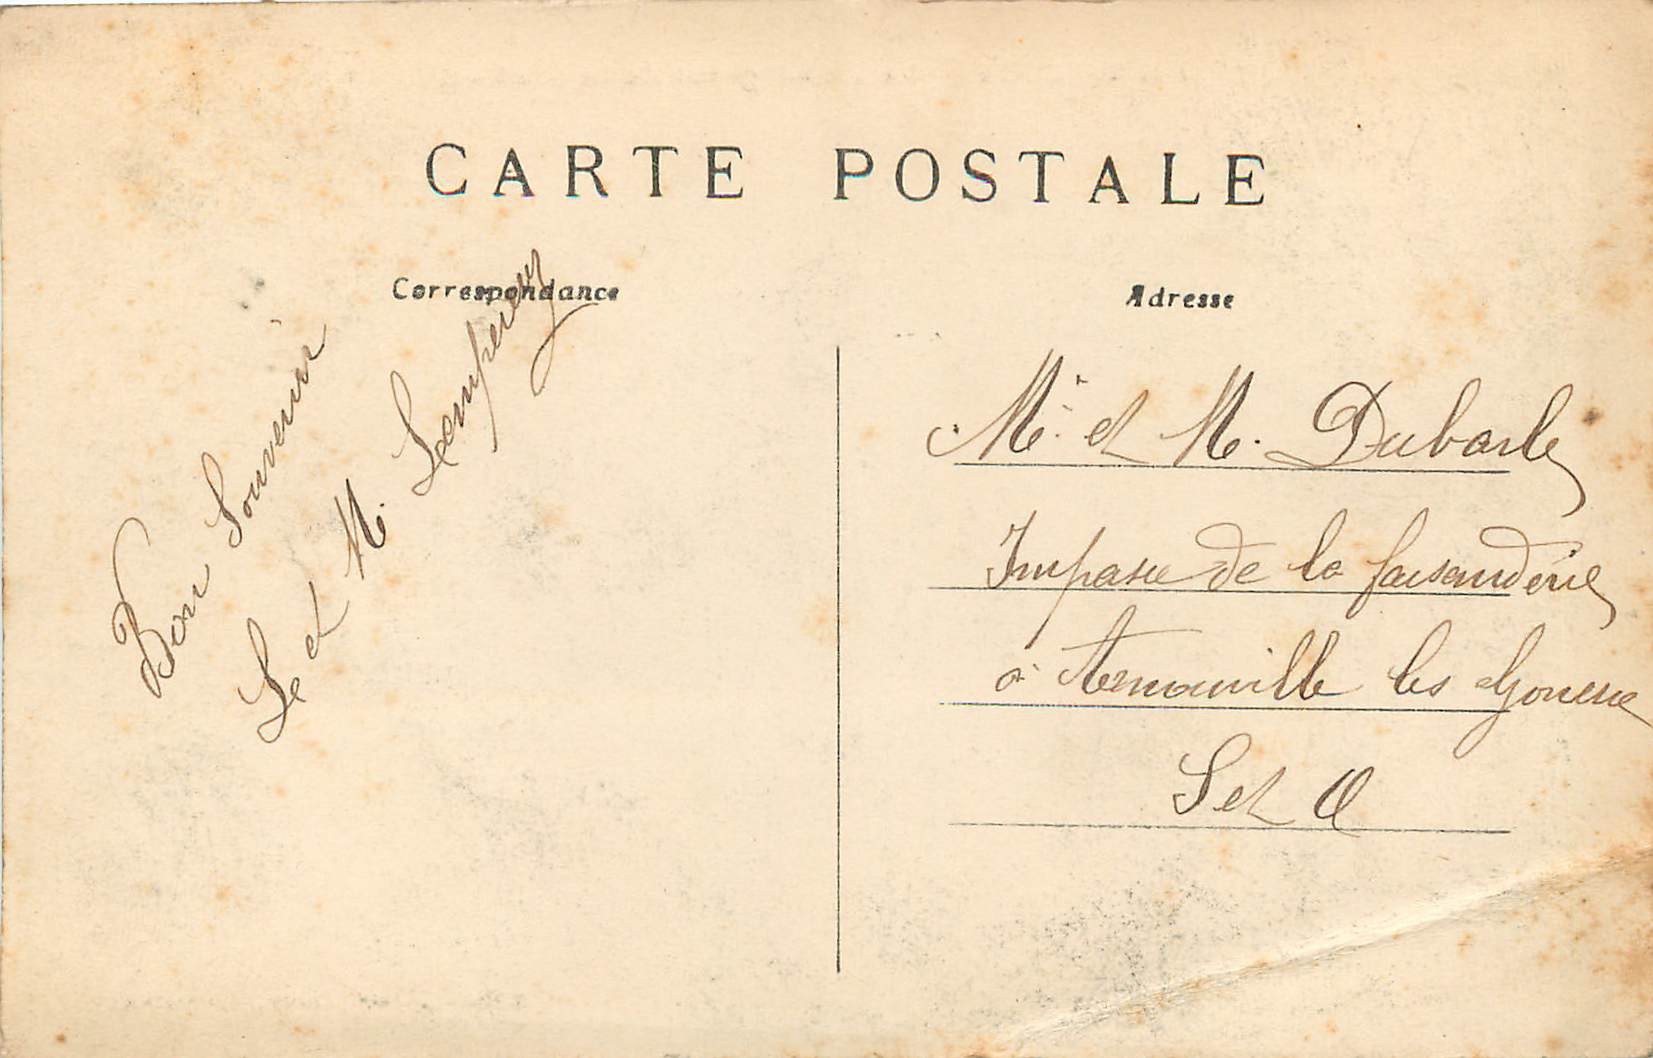 CARTE POSTALE
Correspondance
Adresse
Bon Souvenir
L et M. Lempereur
Mr et M. Dubarle
Impasse de la faisanderie
à Arnouville les Gonesse
S et O